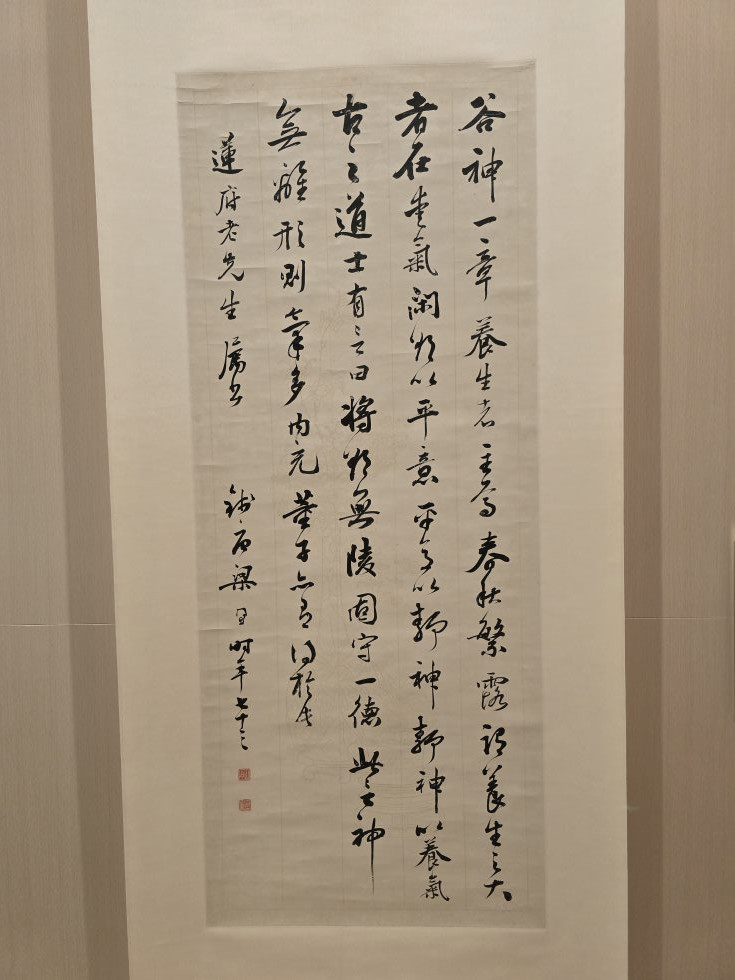 谷神一章養生者主焉春秋繁露謂養生之大
者在愛氣閑欲以平意平意以靜神靜神以養氣
古之道士有言曰將欲無陵固守一德此言神
無離形則氣多內充董子亦有得於
蓮府老先生屬書
梁
時年七十